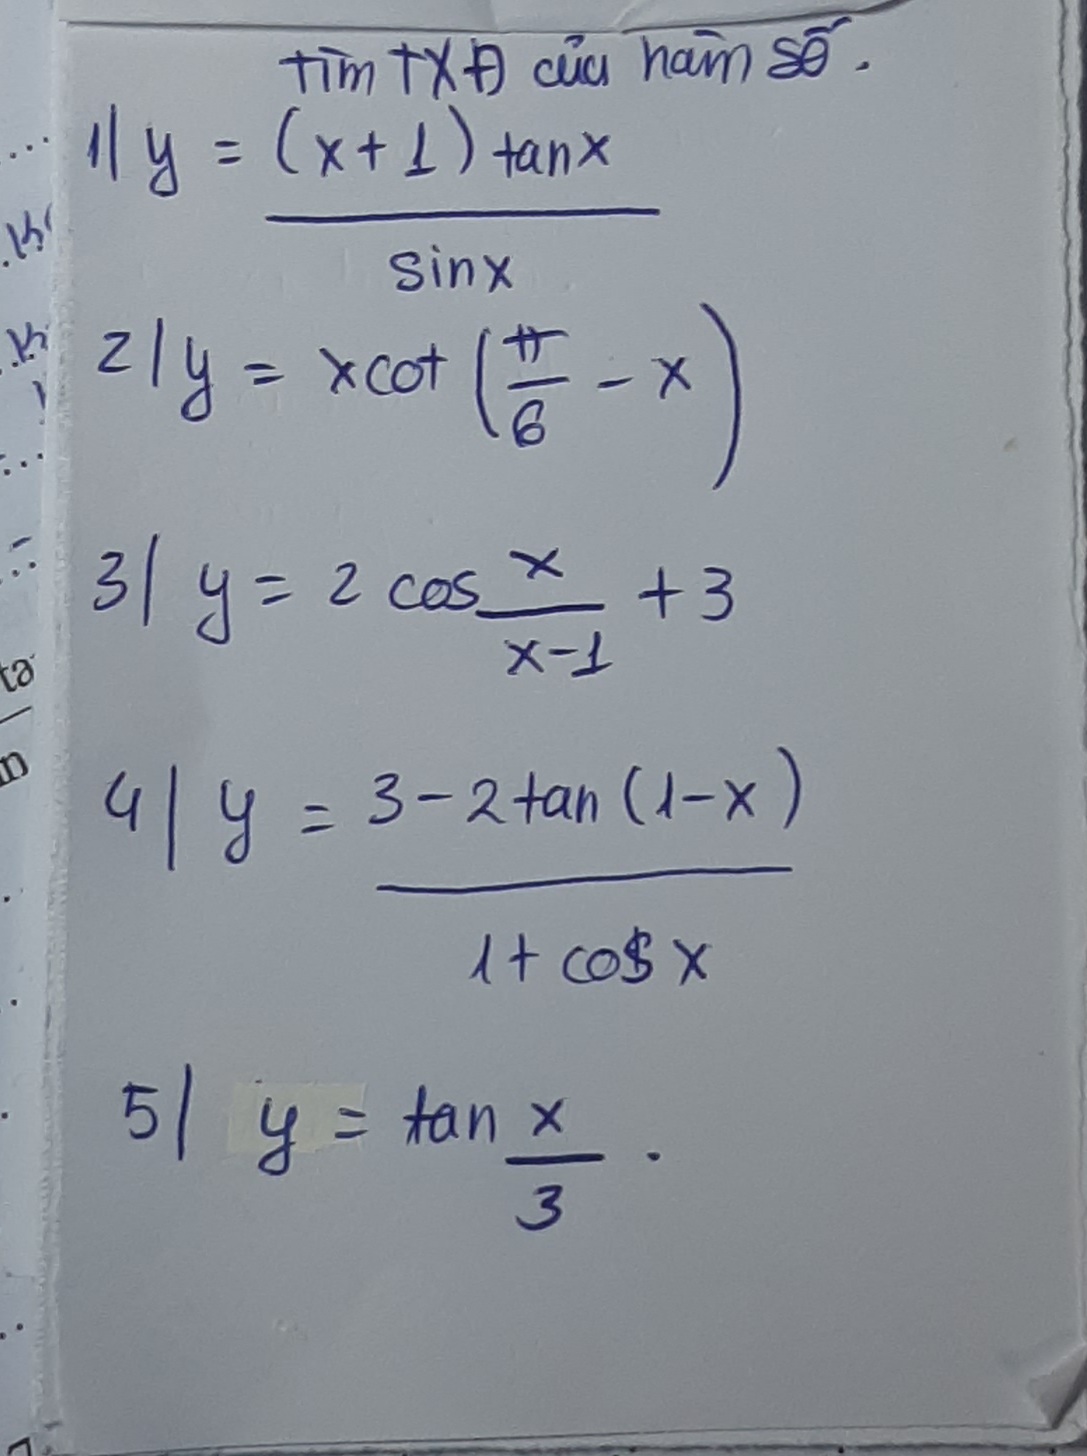 tìm TXĐ của hàm số.
1| y = (x+1) tanx
sinx
2| y = xcot (π/6 - x)
3| y = 2 cos x/(x-1) + 3
4| y = 3-2tan(1-x)
1+ cosx
5| y = tan x/3 .